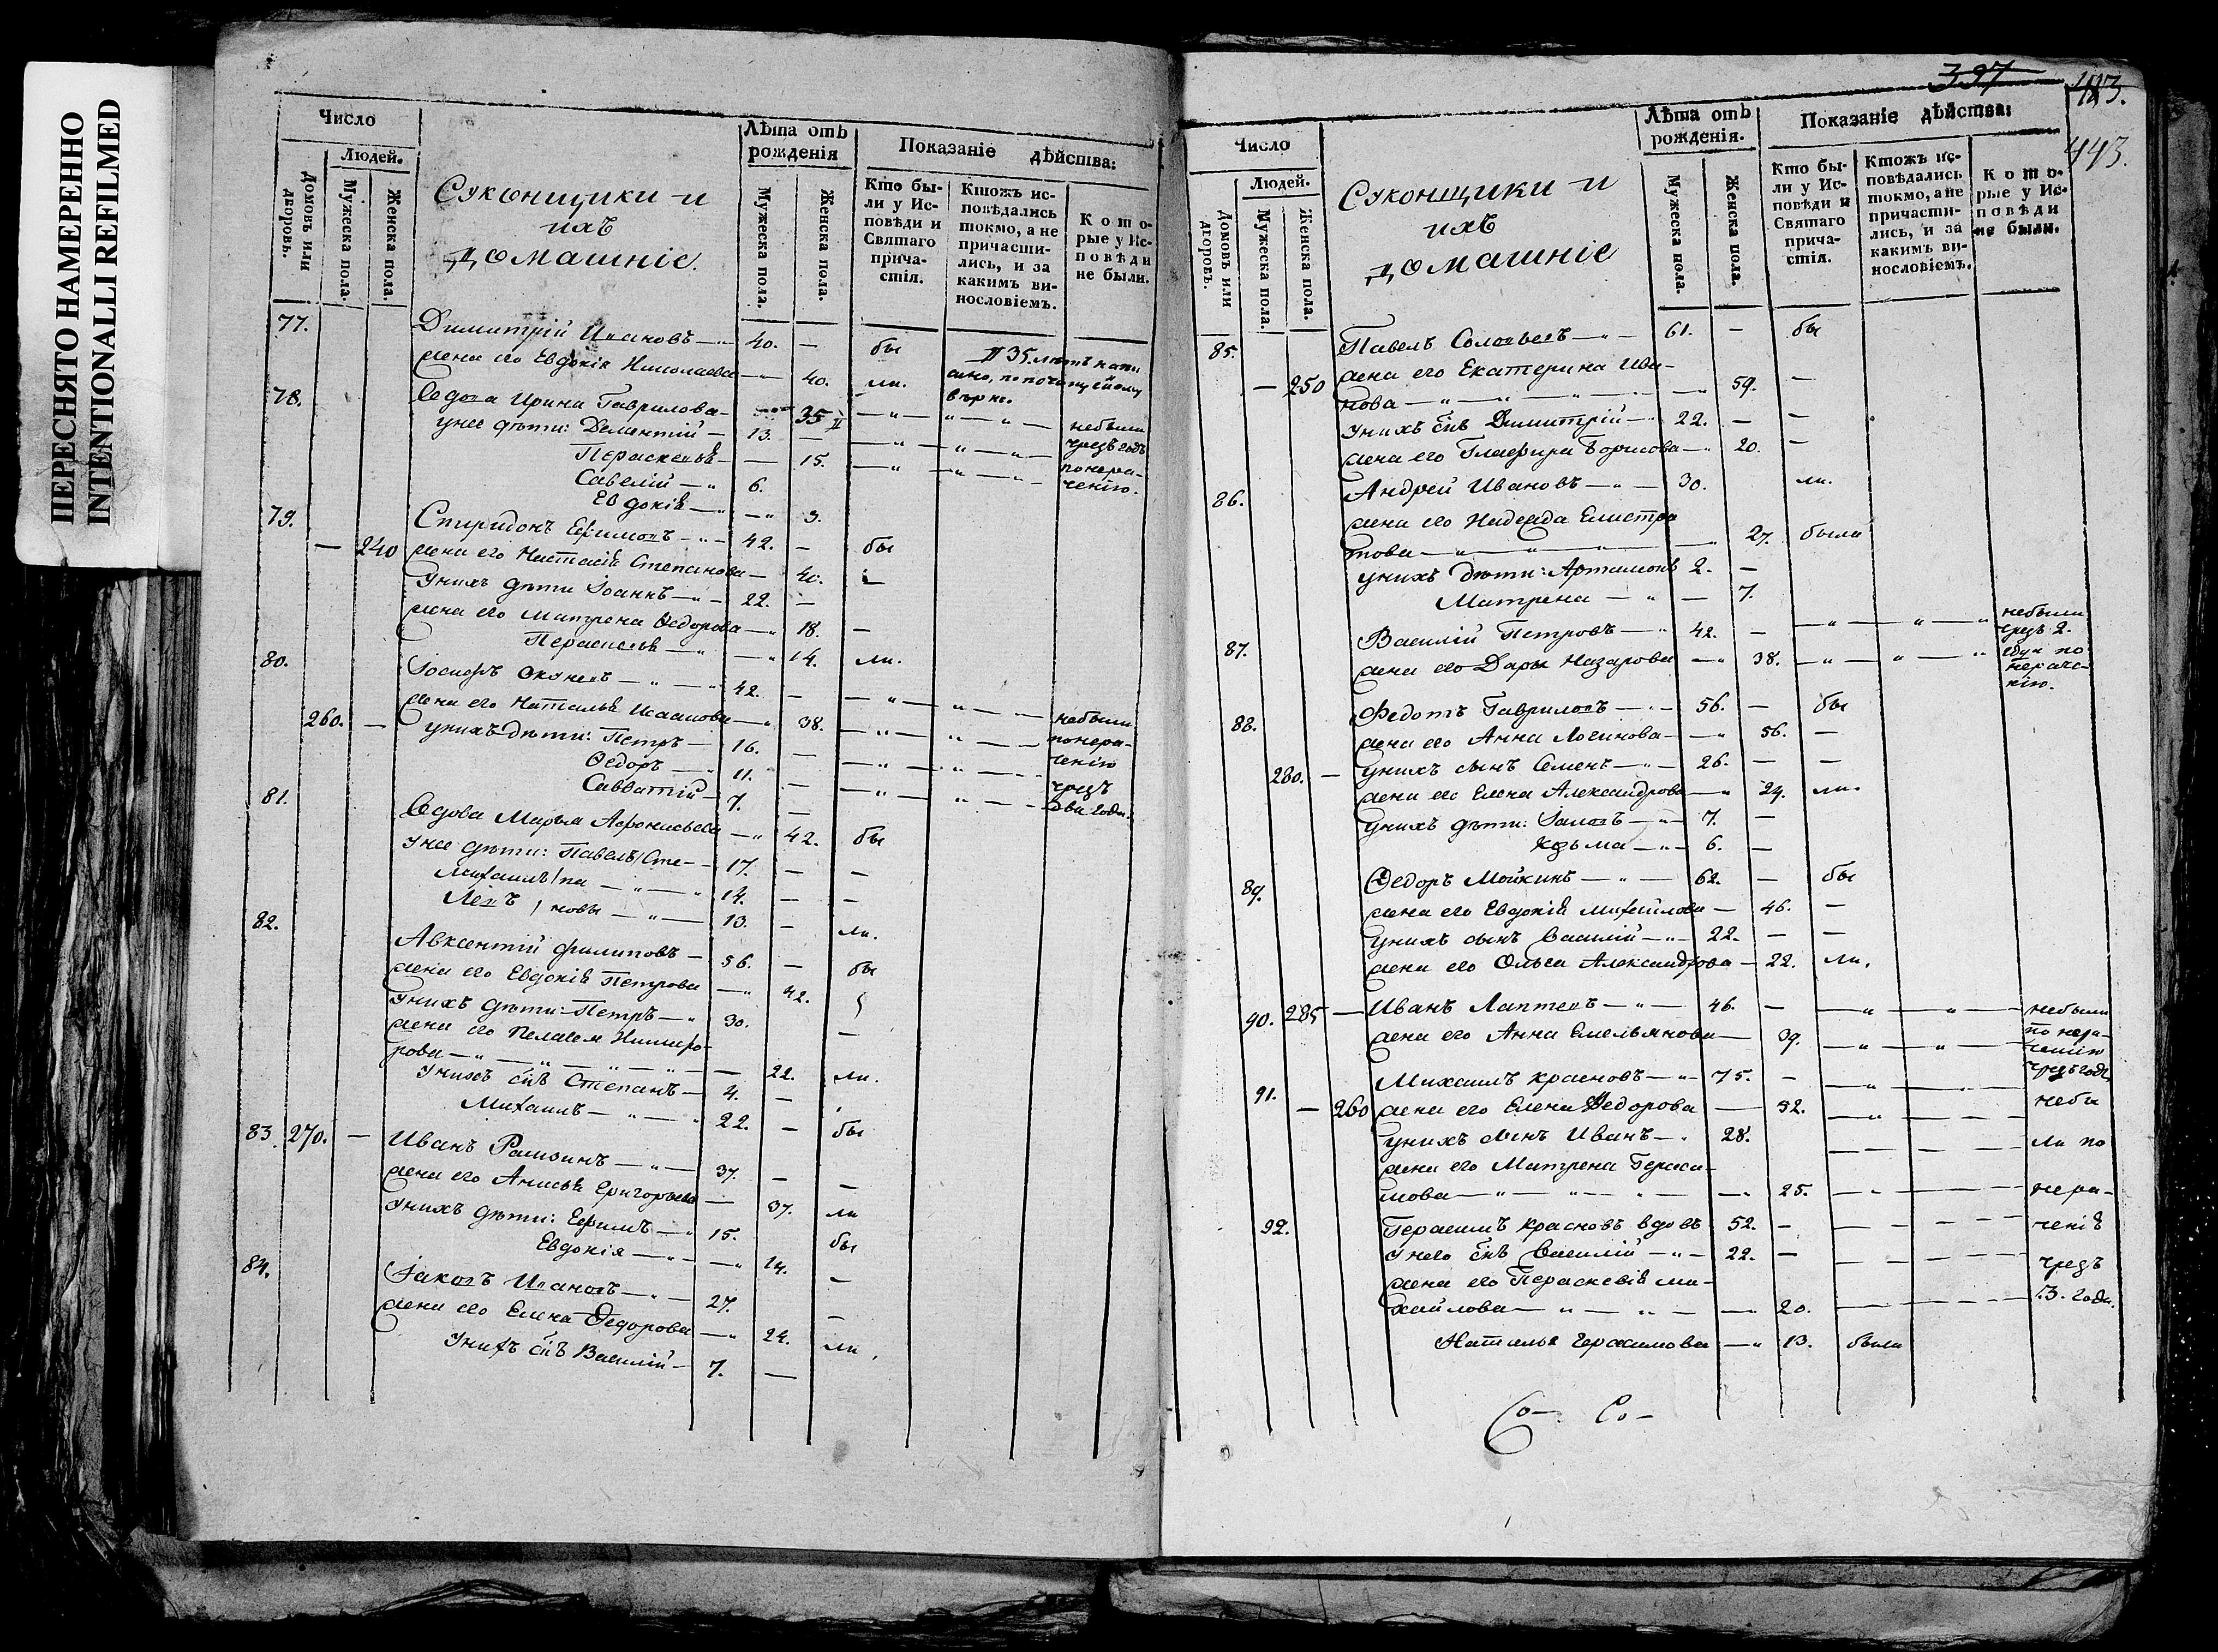 ПЕРЕСНЯТО НАМЕРЕННО
INTENTIONALLI REFILMED
Число
Людей.
Домовъ или дворовъ.
Мужеска пола.
Женска пола.
Суконщики и
ихъ
домашніе.
Лѣта отъ рожденія
Мужеска пола.
Женска пола.
Показаніе дѣйства:
Кто были у Исповѣди и Святаго причастія.
Ктожъ исповѣдались токмо, а не причастились, и за какимъ винословіемъ.
Которые у Исповѣди не были.
77. Димитрій Ивановъ — 40. — бы
жена его Евдокія Николаева — 40. ли.
35 лѣтъ написано, по почищенному вѣрно.
78. вдова Ирина Гаврилова — 35 небыли
унее дѣти: Дементій — 13. — чрезъ годъ
Параскевья — 15. понера-
Савелій — 6. ченію.
Евдокія — 9.
79. Спиридонъ Ефимовъ — 42. — бы
— 240 жена его Настасія Степанова — 40. —
унихъ дѣти Іоаннъ — 22. —
жена его Матрена Ѳедорова — 18. —
Параскевья — 14. ли.
80. Іосифъ Окуневъ — 42. —
жена его Наталья Исакова — 38. небыли
260. — унихъ дѣти: Петръ — 16. — понера-
Ѳедоръ — 11. — ченію
Савватій — 7. — чрезъ
два года.
81. вдова Марья Афонасьева — 42. бы
унее дѣти: Павелъ | Сте- — 17. — —
Михаилъ | па — 14. — —
Левъ | новы — 13. — ли.
82. Авксентій Филиповъ — 56. — бы
жена его Евдокія Петрова — 42.
унихъ дѣти: Петръ — 30. —
жена его Пелагея Никифо-
рова — 22. ли.
унихъ снъ Степанъ — 4. —
Михаилъ — 22. — бы
83. 270. — Иванъ Рамзинъ — 37. — —
жена его Анисья Григорьева — 37. ли
унихъ дѣти: Ефимъ — 15. бы
Евдокія — 14. —
84. Іаковъ Ивановъ — 27. —
жена его Елена Ѳедорова — 24. ли.
унихъ снъ Василій — 7. —
397
443.
443.
Число
Людей.
Домовъ или дворовъ.
Мужеска пола.
Женска пола.
Суконщики и
ихъ
домашніе
Лѣта отъ рожденія.
Мужеска пола.
Женска пола.
Показаніе дѣйства:
Кто были у Исповѣди и Святаго причастія.
Ктожъ исповѣдались токмо, а не причастились, и за какимъ винословіемъ.
Которые у Исповѣди не были.
85. Павелъ Соловьевъ — 61. — бы
— 250 жена его Екатерина Ива-
нова — 59. —
унихъ снъ Димитрій — 22. — —
жена его Глафира Борисова — 20. —
86. Андрей Ивановъ — 30. ли.
жена его Надежда Елистра
това — 27. были
унихъ дѣти: Артамонъ 2. —
Матрена — 7.
87. Василій Петровъ — 42. — небыли
чрезъ 2.
жена его Дарья Назарова — 38. года по
нераче-
нію.
88. Федотъ Гавриловъ — 56. — бы
жена его Анна Логинова — 56. —
280. — унихъ сынъ Семенъ — 26. — —
жена его Елена Александрова — 24. ли.
унихъ дѣти: Іаковъ — 7. —
Козьма — 6. —
89. Ѳедоръ Мойкинъ — 62. — бы
жена его Евдокія Михайлова — 46. —
унихъ сынъ Василій — 22. — —
жена его Ольга Александрова — 22. ли.
90. 285 — Иванъ Лаптевъ — 46. — небыли
жена его Анна Емельянова — 39. по нера-
ченію
91. Михаилъ Красновъ — 75. — чрезъ годъ
— 260 жена его Елена Ѳедорова — 52. небы
унихъ сынъ Иванъ — 28. ли по
жена его Матрена Гераси-
мова — 25. нера-
92. Герасимъ Красновъ вдовъ 52. — ченію
у него снъ Василій — 22. — чрезъ
жена его Параскевія Ми-
хайлова — 20. 3. года.
Наталья Герасимова — 13. были